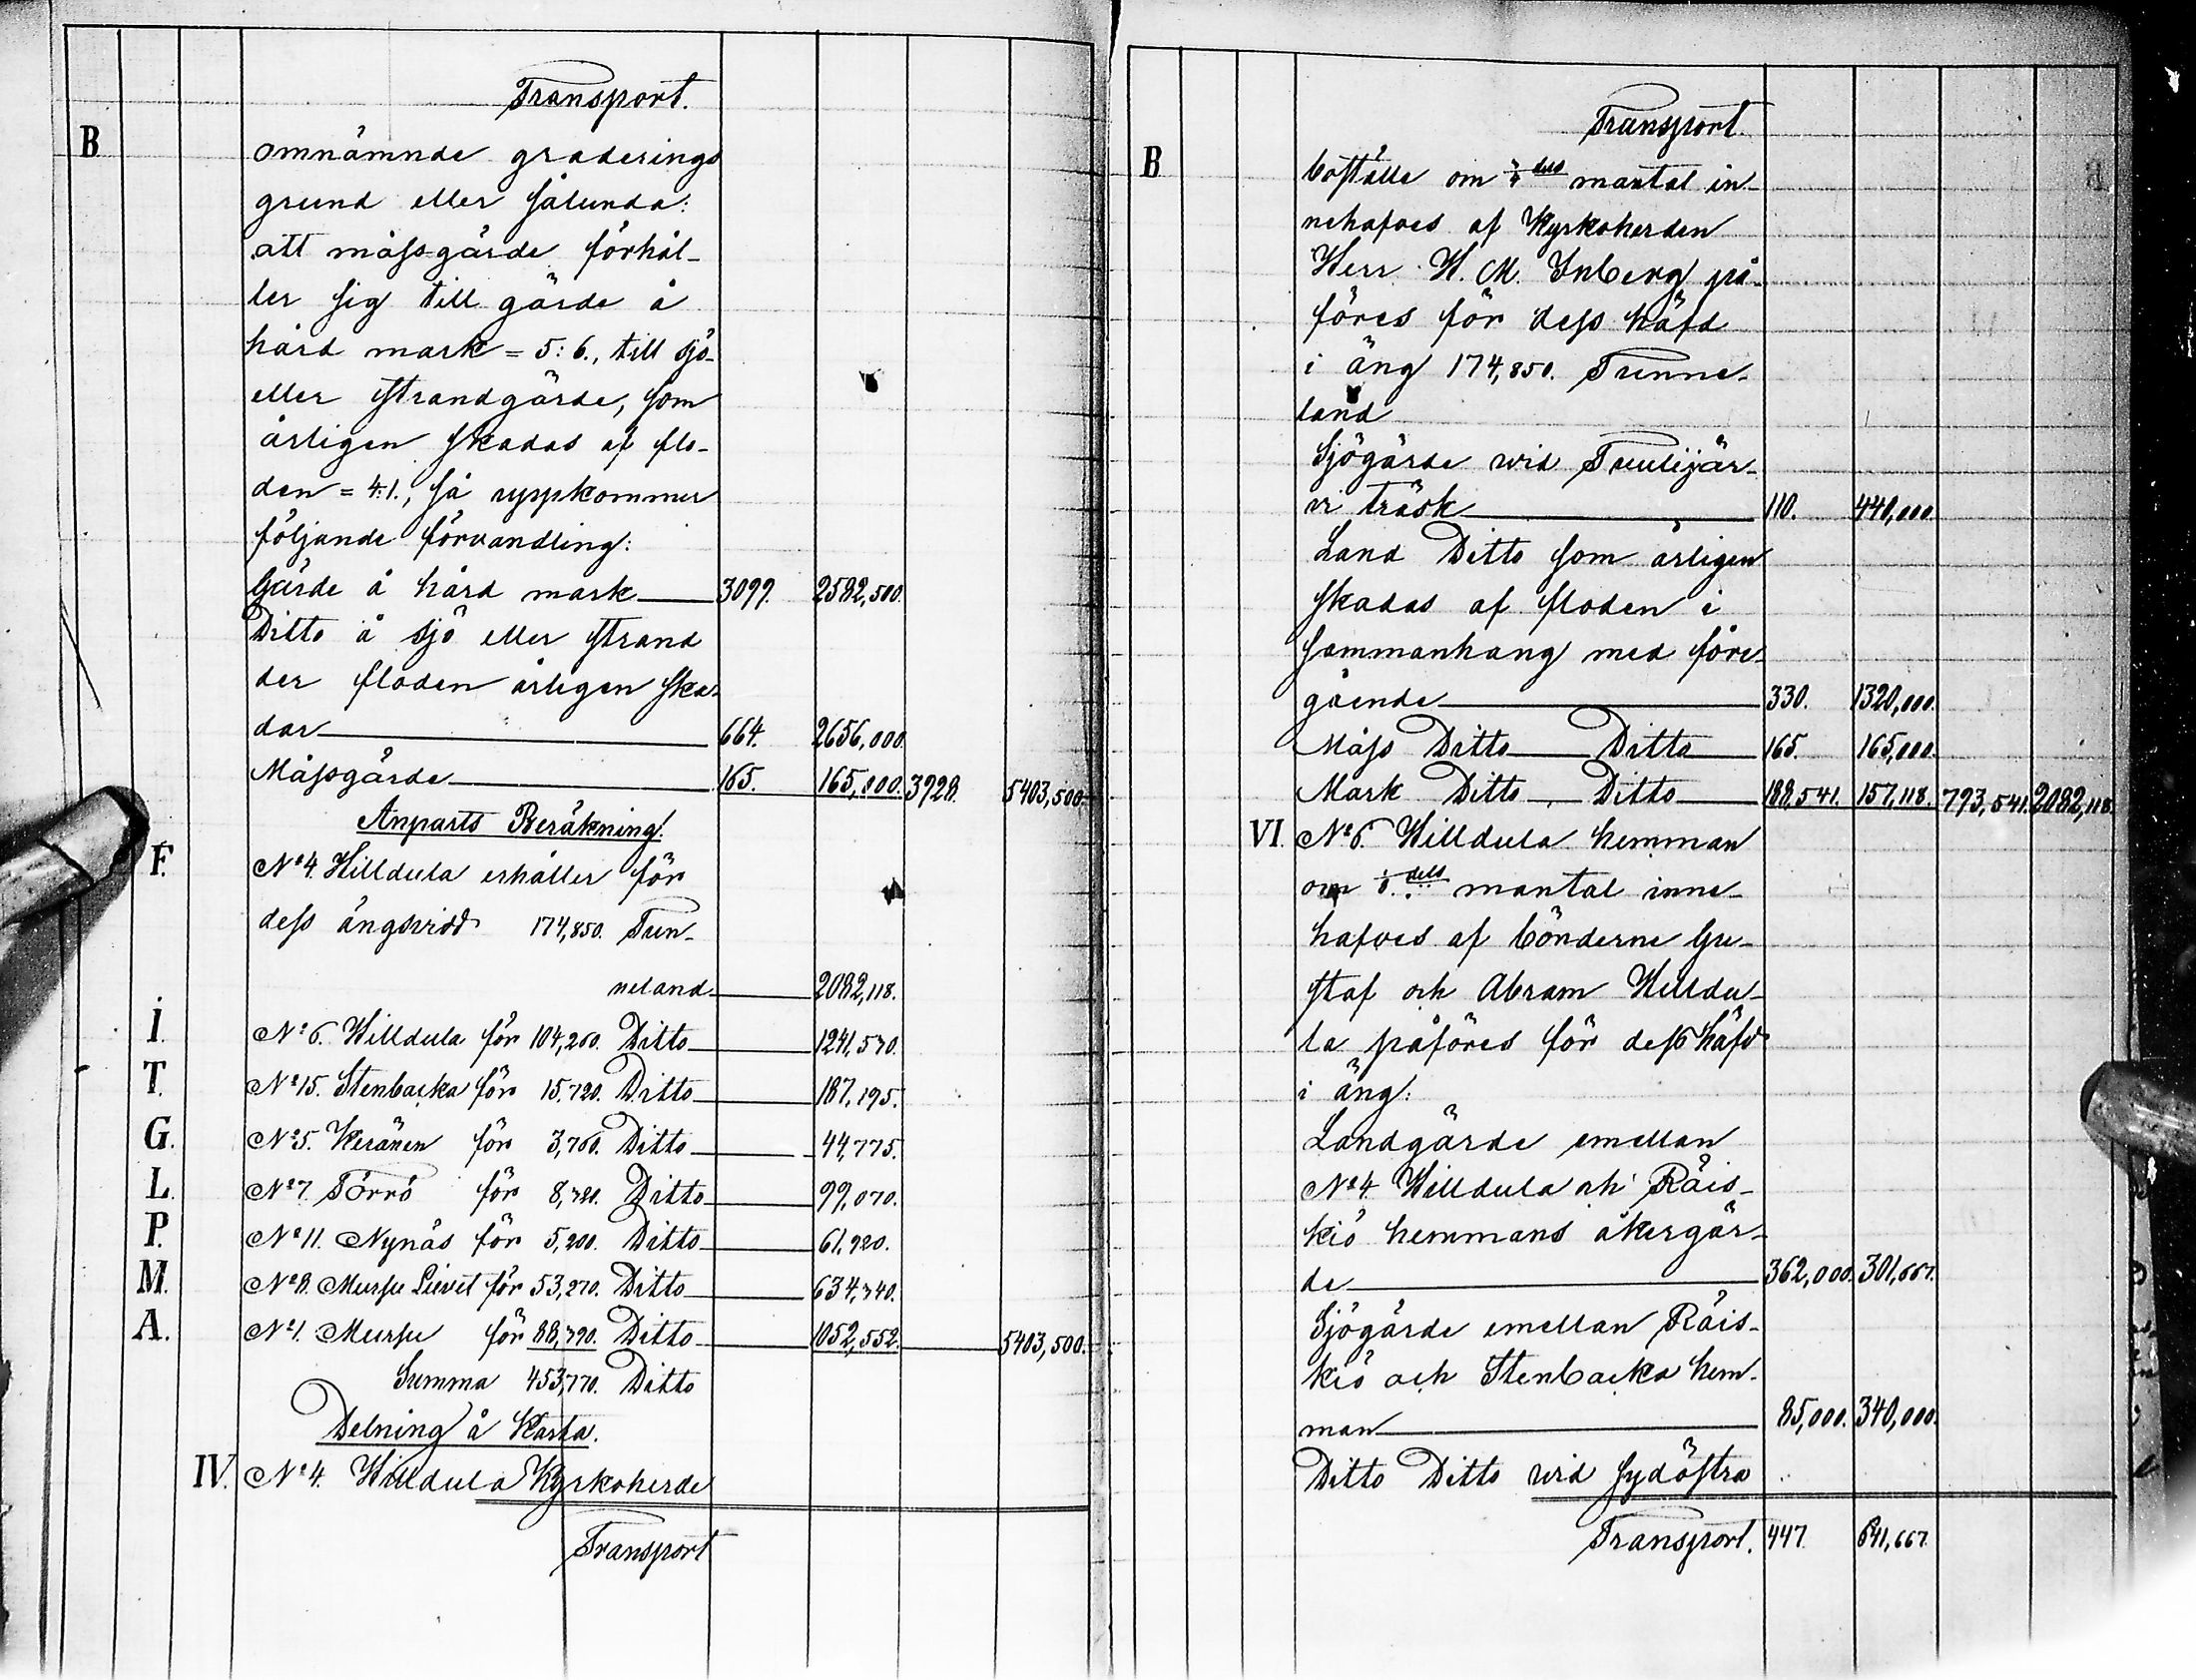 Transport.
B omnämnde graderings
grund eller sålunda:
att måssgärde förhål-
ler sig till gärde å
hård mark = 5:6., till sjö-
eller strandgärde, som
årligen skadas af flo-
den = 4:1., så uppkommer
följande förvandling:
Gärde å hård mark 3099. 2582,500.
Ditto å sjö eller strand
der floden årligen ska-
dar 664. 2656,000.
Måssgärde 165. 165,000. 3928. 5403,500.
Anparts Beräkning.
F. No 4. Willdula erhåller för
dess ängsvidd 174,850. Tun-
neland 2082,118.
I. No 6. Willdula för 104,260. Ditto 1241,530.
T. No 15. Stenbacka för 15,720. Ditto 187,195.
G. No 5. Keränen för 3,760. Ditto 44,775.
L. No 7. Törrö för 8,320. Ditto 99,070.
P. No 11. Nynäs för 5,200. Ditto 61,920.
M. No 8. Mursu Lievet för 53,270. Ditto 634,340.
A. No 1. Mursu för 88,390. Ditto 1052,552. 5403,500.
Summa 453,770. Ditto
Delning å Karta.
IV. No 4. Willdula Kyrkoherde
Transport
Transport.
B boställe om dels mantal in-
nehafves af Kyrkoherden
Herr W. M. Inberg på-
föres för dess häfd
i äng 174,850. Tunne-
land
Sjögärde wid Tuulijär-
vi träsk 110. 440,000.
Land Ditto som årligen
skadas af floden i
sammanhang med före-
gående 330. 1320,000.
Måss Ditto Ditto 165. 165,000.
Mark Ditto Ditto 188,541. 157,118. 793,541. 2082,118.
VI. No 6. Willdula hemman
om dels mantal inne-
hafves af bönderne Gu-
staf och Abram Willdu-
la påföres för dess häfd
i äng:
Landgärde emellan
No 4. Willdula och Räis-
kiö hemmans åkergär-
de 362,000. 301,667.
Sjögärde emellan Räis-
kiö och Stenbacka hem-
man 85,000. 340,000.
Ditto Ditto wid sydöstra
Transport. 447. 641,667.